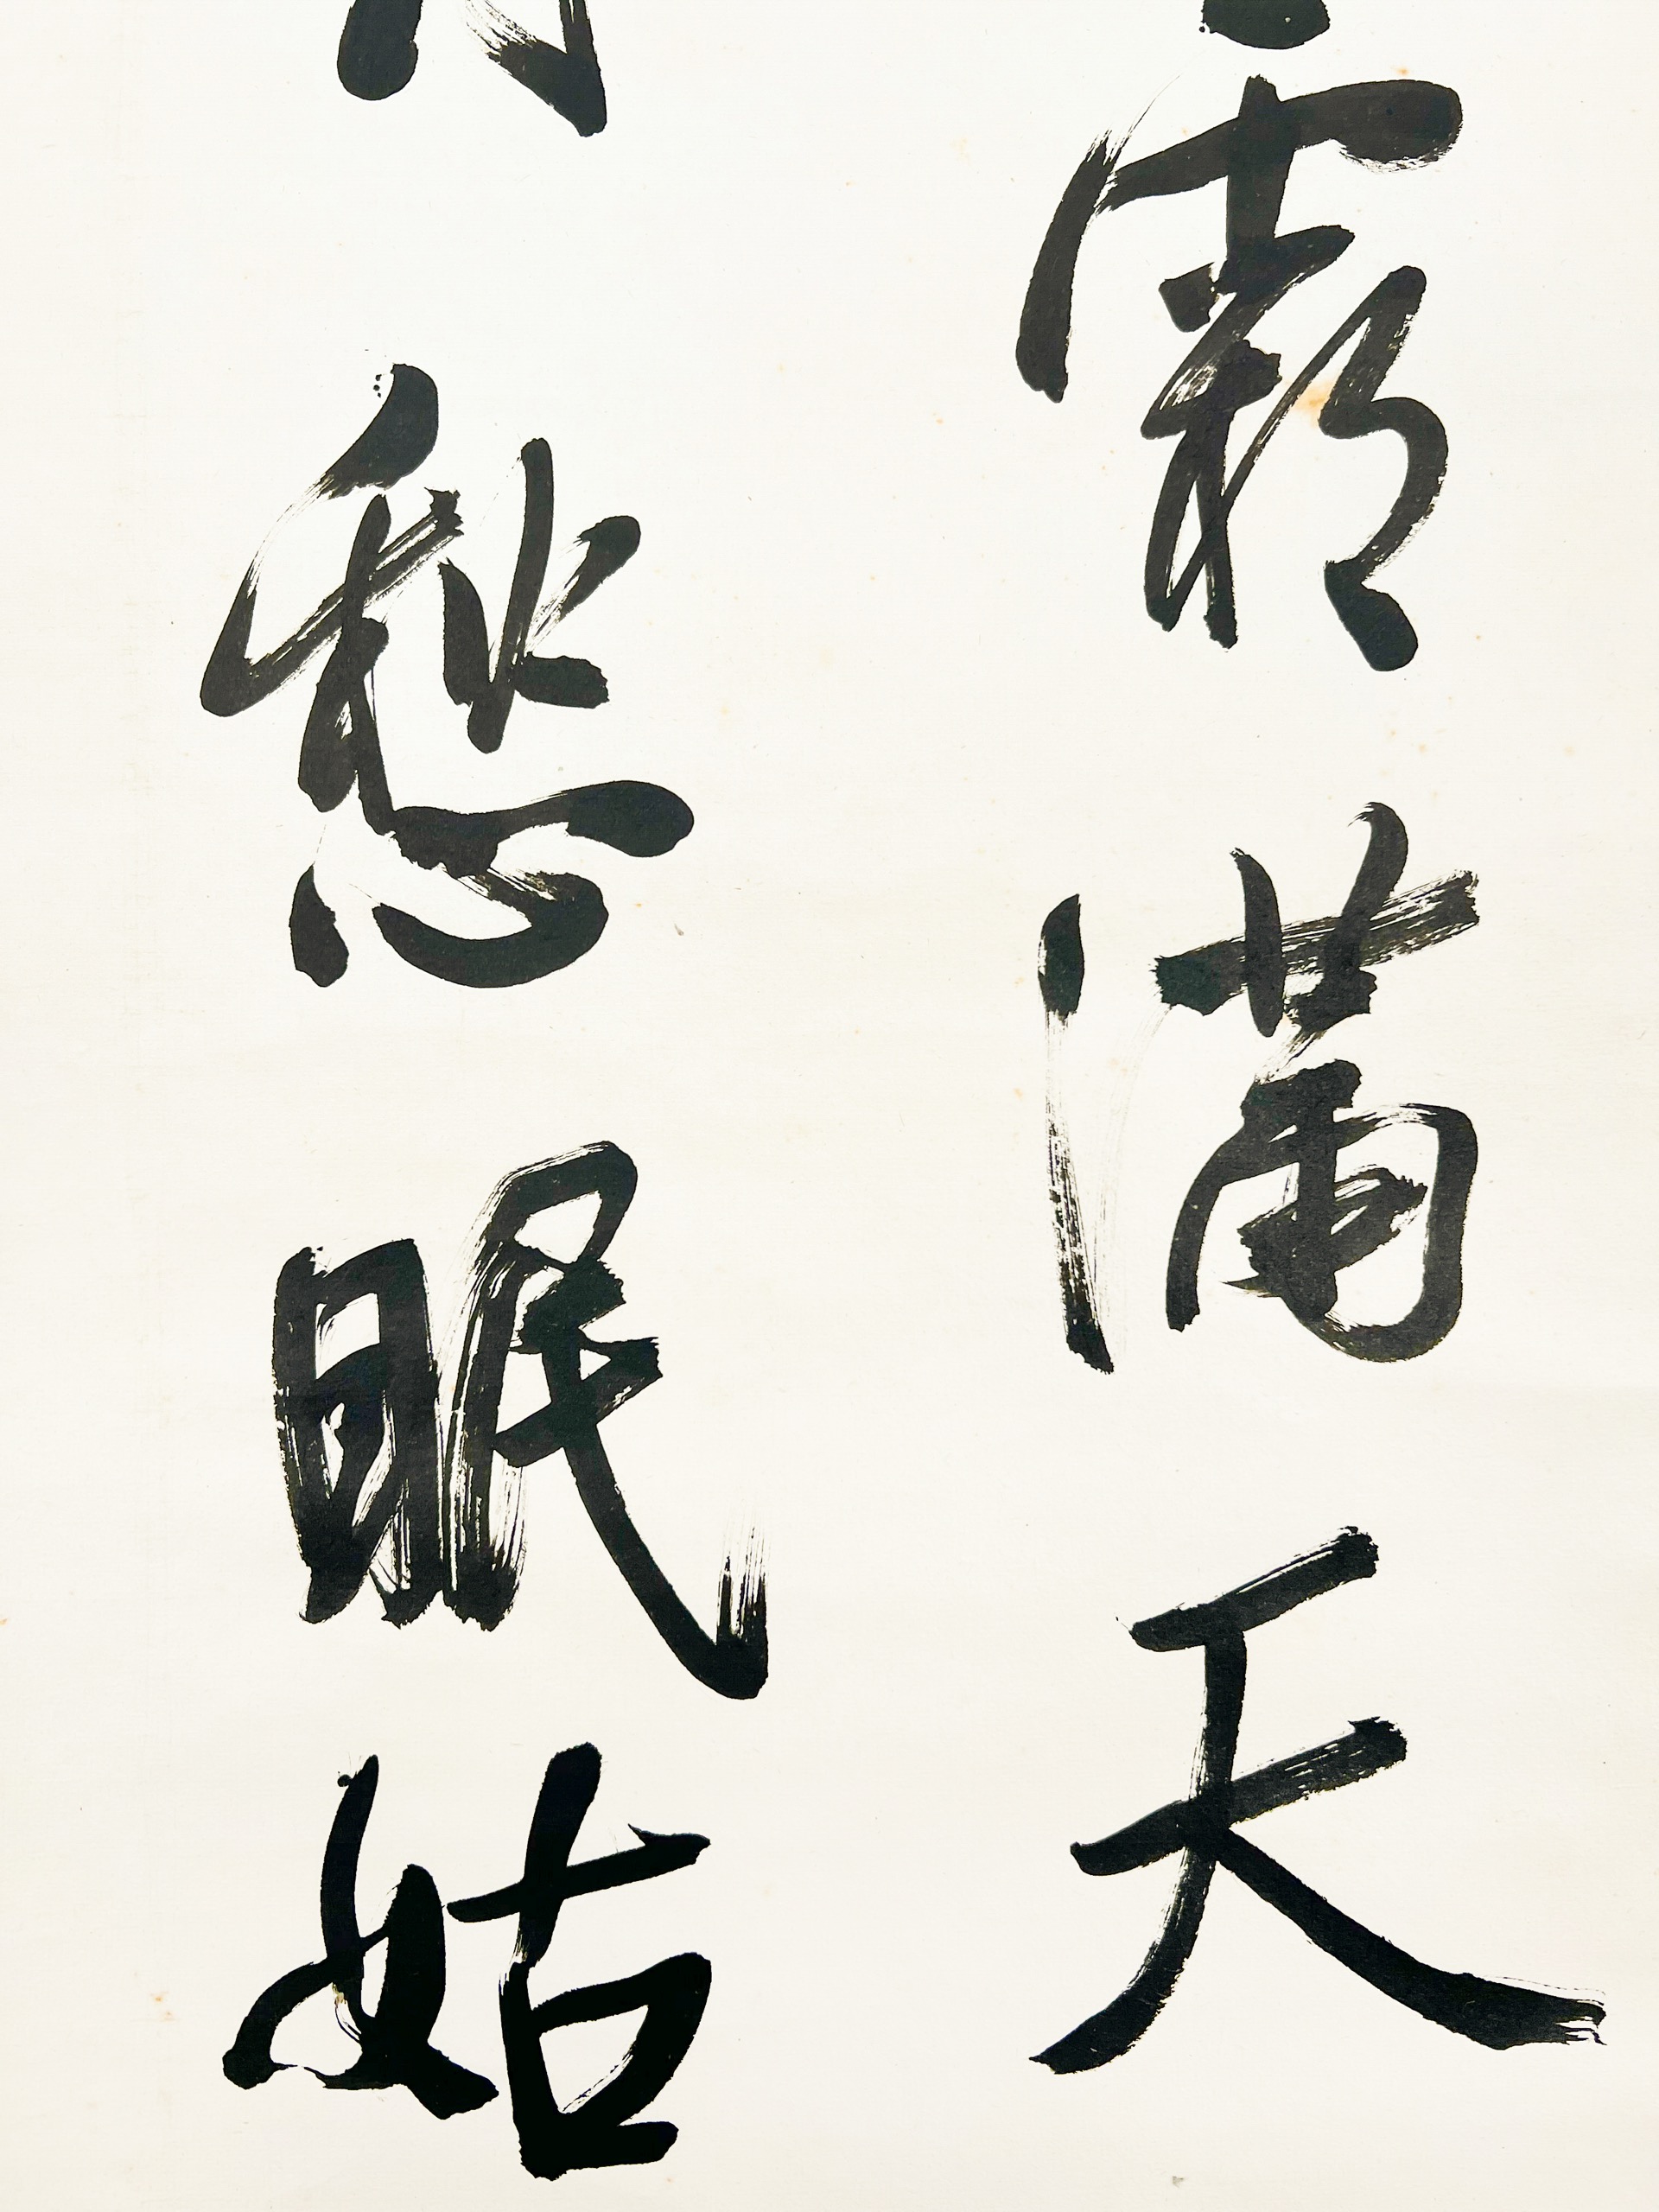 霜滿天
愁眠姑